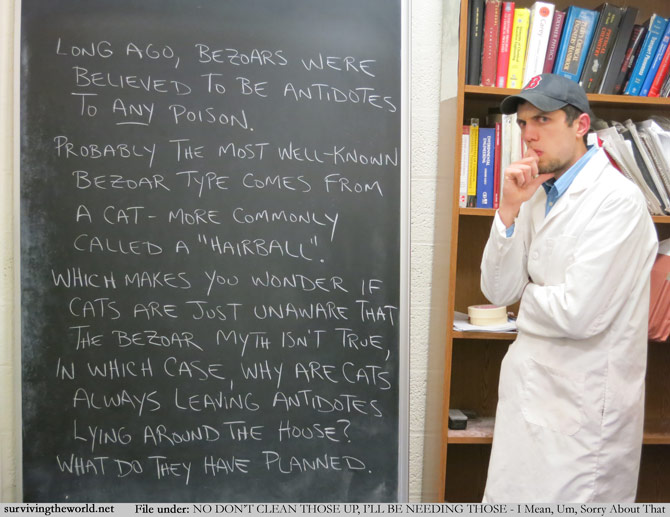 LONG AGO, BEZOARS WERE
BELIEVED TO BE ANTIDOTES
TO ANY POISON.
PROBABLY THE MOST WELL-KNOWN
BEZOAR TYPE COMES FROM
A CAT - MORE COMMONLY
CALLED A "HAIRBALL".
WHICH MAKES YOU WONDER IF
CATS ARE JUST UNAWARE THAT
THE BEZOAR MYTH ISN'T TRUE,
IN WHICH CASE, WHY ARE CATS
ALWAYS LEAVING ANTIDOTES
LYING AROUND THE HOUSE?
WHAT DO THEY HAVE PLANNED.
B
survivingtheworld.net File under: NO DON'T CLEAN THOSE UP, I'LL BE NEEDING THOSE - I Mean, Um, Sorry About That